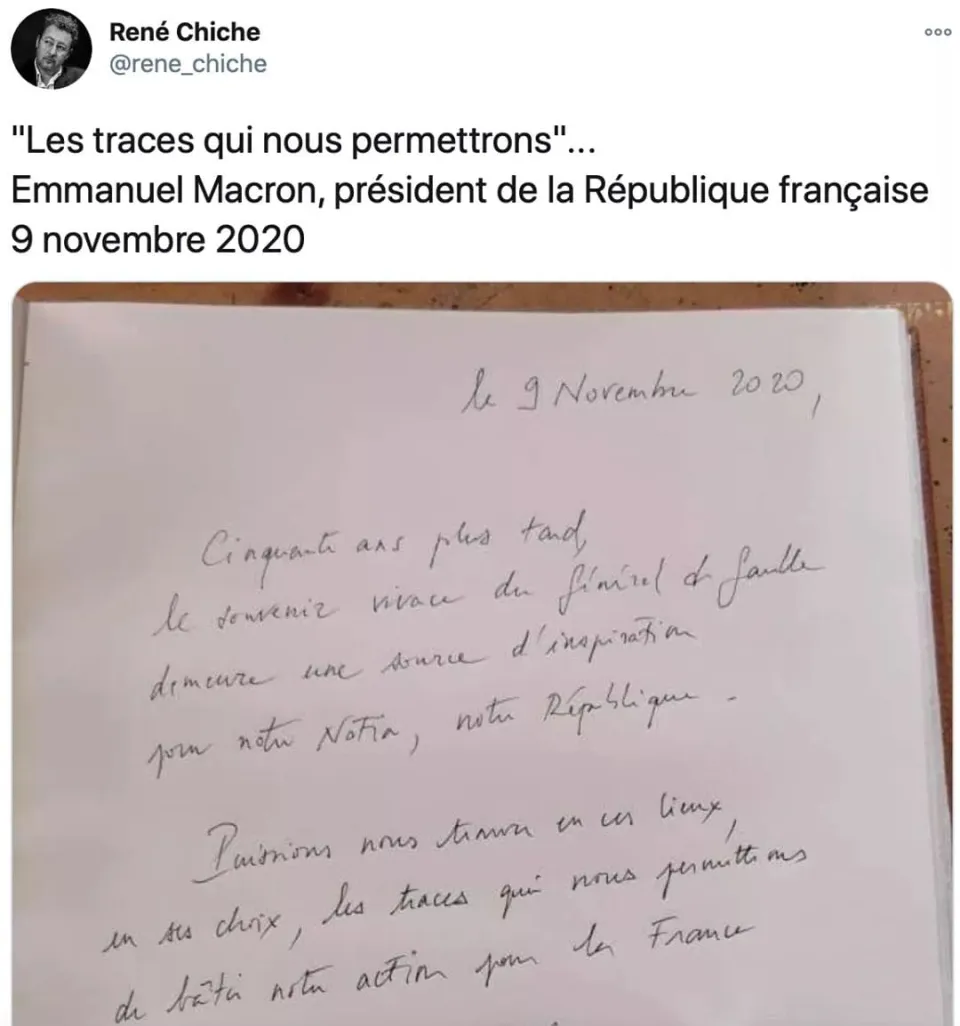 René Chiche
@rene_chiche
"Les traces qui nous permettrons"...
Emmanuel Macron, président de la République française
9 novembre 2020
le 9 Novembre 2020,
Cinquante ans plus tard,
le souvenir vivace du Général de Gaulle
demeure une source d'inspiration
pour notre Nation, notre République.
Puissions nous trouver en ces lieux,
en ses choix, les traces qui nous permettrons
de bâtir notre action pour la France